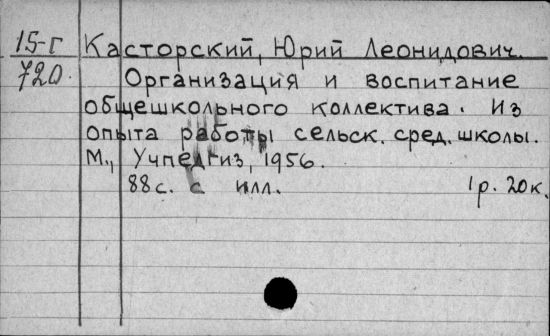 15-г Касторский, Юрий Леонидович.
720. Организация и воспитание
общешкольного коллектива. Из
опыта работы сельск. сред. школы.
М., Учпедгиз, 1956.
88 с. с илл. 1 р. 20 к.